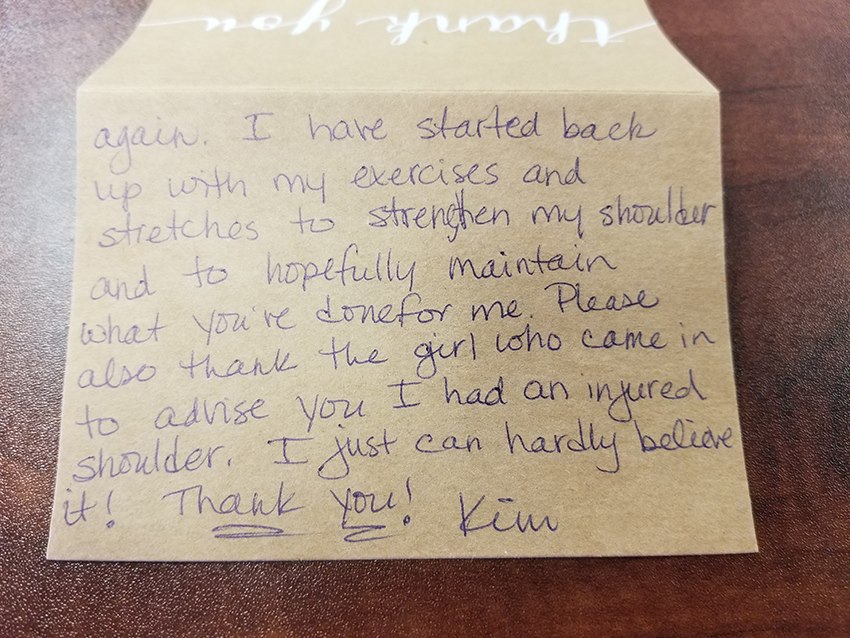 thank you
again. I have started back
up with my exercises and
stretches to strengthen my shoulder
and to hopefully maintain
what you're donefor me. Please
also thank the girl who came in
to advise you I had an injured
shoulder. I just can hardly believe
it! Thank you! Kim